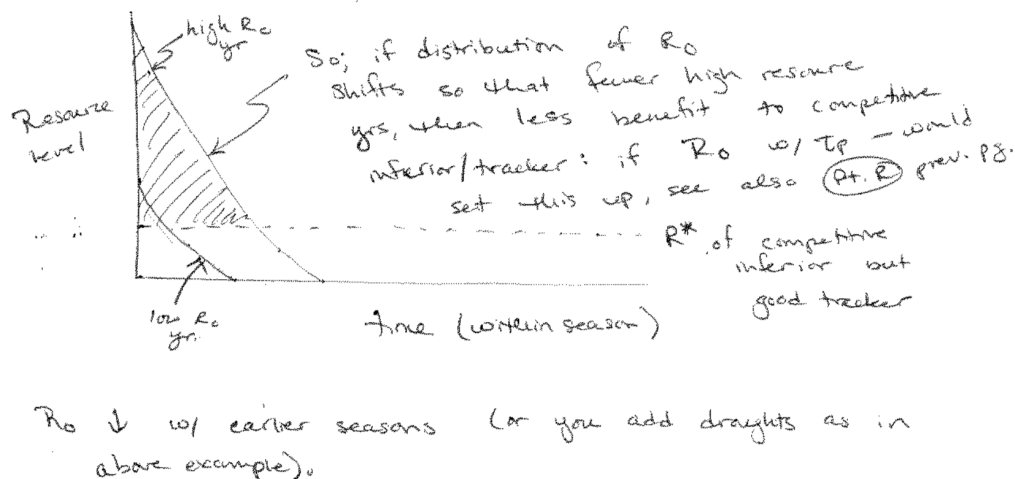 high Ro
yr
So; if distribution of Ro
shifts so that fewer high resoure
yrs, then less benefit to competitive
inferior/tracker: if Ro w/ τp – would
set this up, see also pt. R prev. pg.
Resource
level
R* of competitive
inferior but
good tracker
low Ro
yr.
time (within season)
Ro ↓ w/ earlier seasons (or you add draughts as in
above example).